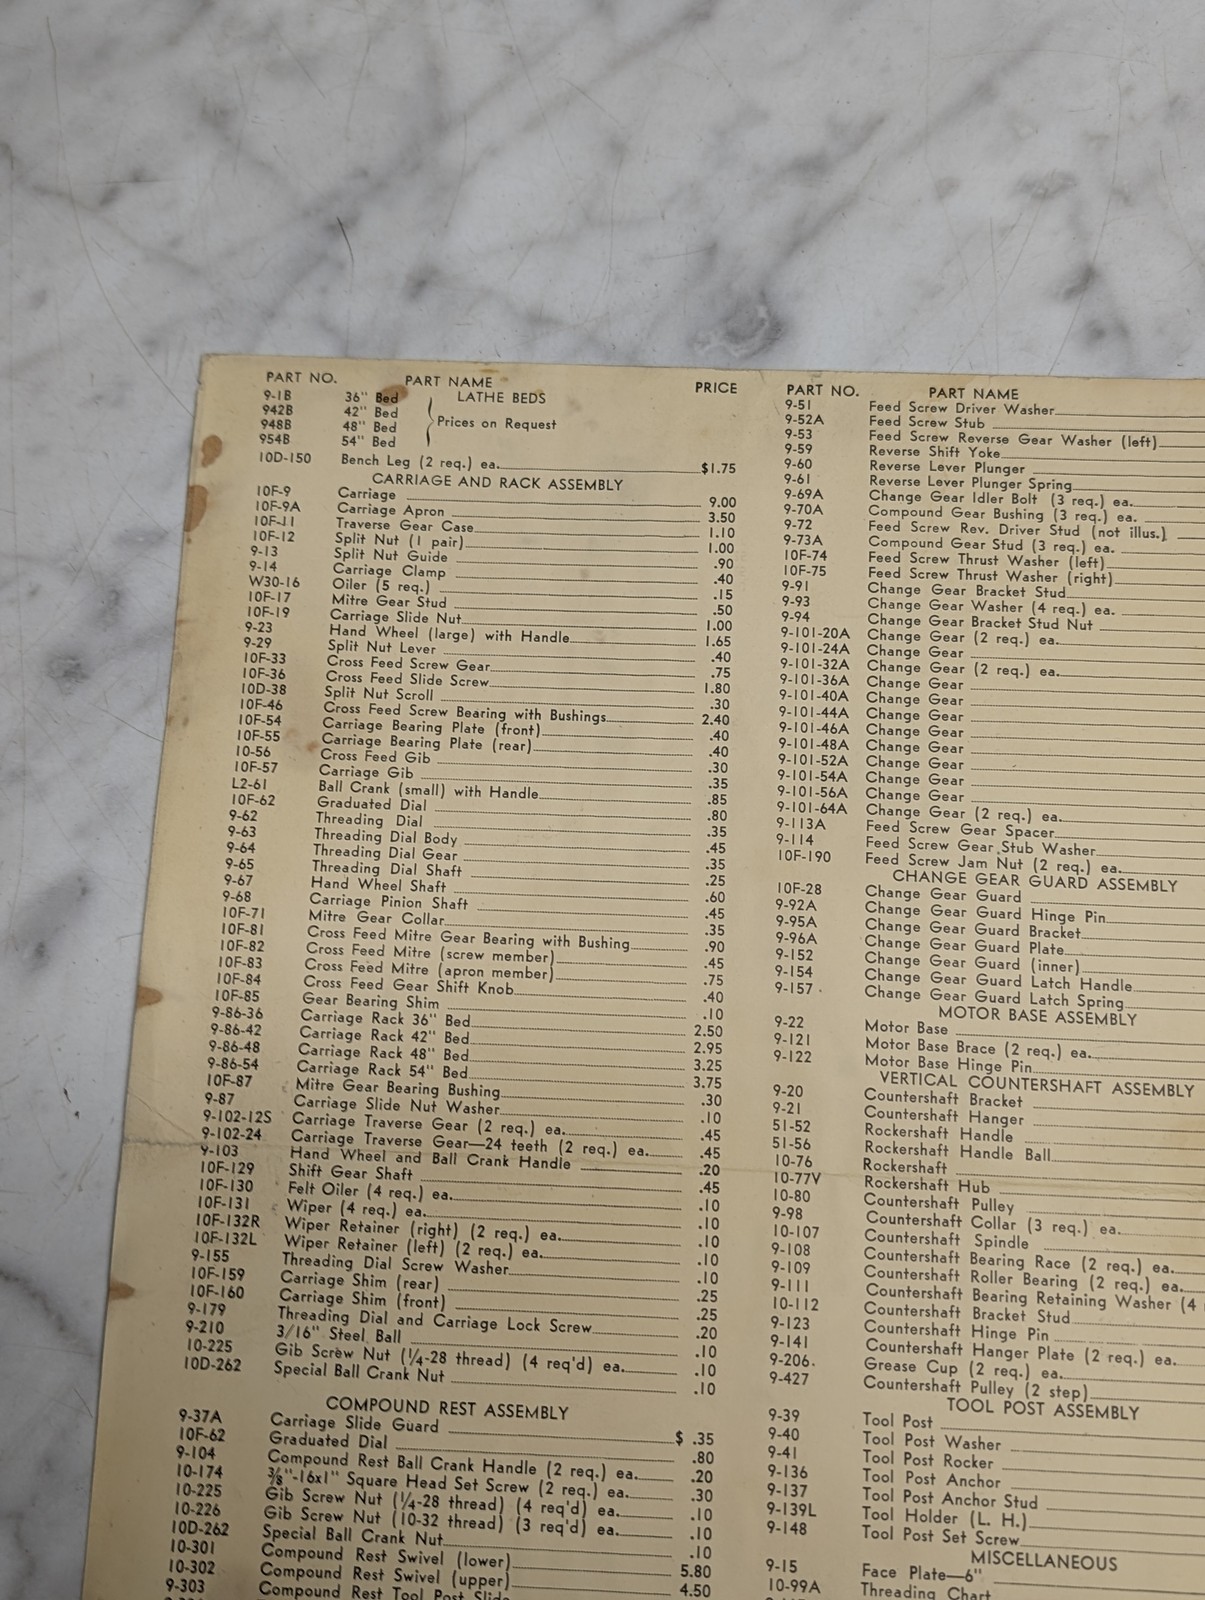 PART NO. PART NAME PRICE
LATHE BEDS
9-1B 36" Bed
942B 42" Bed
948B 48" Bed
954B 54" Bed
Prices on Request
10D-150 Bench Leg (2 req.) ea. $1.75
CARRIAGE AND RACK ASSEMBLY
10F-9 Carriage 9.00
10F-9A Carriage Apron 3.50
10F-11 Traverse Gear Case 1.10
10F-12 Split Nut (1 pair) 1.00
9-13 Split Nut Guide .90
9-14 Carriage Clamp .40
W30-16 Oiler (5 req.) .15
10F-17 Mitre Gear Stud .50
10F-19 Carriage Slide Nut 1.00
9-23 Hand Wheel (large) with Handle 1.65
9-29 Split Nut Lever .40
10F-33 Cross Feed Screw Gear .75
10F-36 Cross Feed Slide Screw 1.80
10D-38 Split Nut Scroll .30
10F-46 Cross Feed Screw Bearing with Bushings 2.40
10F-54 Carriage Bearing Plate (front) .40
10F-55 Carriage Bearing Plate (rear) .40
10-56 Cross Feed Gib .30
10F-57 Carriage Gib .35
L2-61 Ball Crank (small) with Handle .85
10F-62 Graduated Dial .80
9-62 Threading Dial .35
9-63 Threading Dial Body .45
9-64 Threading Dial Gear .35
9-65 Threading Dial Shaft .25
9-67 Hand Wheel Shaft .60
9-68 Carriage Pinion Shaft .45
10F-71 Mitre Gear Collar .35
10F-81 Cross Feed Mitre Gear Bearing with Bushing .90
10F-82 Cross Feed Mitre (screw member) .45
10F-83 Cross Feed Mitre (apron member) .75
10F-84 Cross Feed Gear Shift Knob .40
10F-85 Gear Bearing Shim .10
9-86-36 Carriage Rack 36" Bed 2.50
9-86-42 Carriage Rack 42" Bed 2.95
9-86-48 Carriage Rack 48" Bed 3.25
9-86-54 Carriage Rack 54" Bed 3.75
10F-87 Mitre Gear Bearing Bushing .30
9-87 Carriage Slide Nut Washer .10
9-102-12S Carriage Traverse Gear (2 req.) ea. .45
9-102-24 Carriage Traverse Gear—24 teeth (2 req.) ea. .45
9-103 Hand Wheel and Ball Crank Handle .20
10F-129 Shift Gear Shaft .45
10F-130 Felt Oiler (4 req.) ea. .10
10F-131 Wiper (4 req.) ea. .10
10F-132R Wiper Retainer (right) (2 req.) ea. .10
10F-132L Wiper Retainer (left) (2 req.) ea. .10
9-155 Threading Dial Screw Washer .10
10F-159 Carriage Shim (rear) .25
10F-160 Carriage Shim (front) .25
9-179 Threading Dial and Carriage Lock Screw .20
9-210 3/16" Steel Ball .10
10-225 Gib Screw Nut (1/4-28 thread) (4 req'd) ea. .10
10D-262 Special Ball Crank Nut .10
COMPOUND REST ASSEMBLY
9-37A Carriage Slide Guard $ .35
10F-62 Graduated Dial .80
9-104 Compound Rest Ball Crank Handle (2 req.) ea. .20
10-174 3/8"-16x1" Square Head Set Screw (2 req.) ea. .30
10-225 Gib Screw Nut (1/4-28 thread) (4 req'd) ea. .10
10-226 Gib Screw Nut (10-32 thread) (3 req'd) ea. .10
10D-262 Special Ball Crank Nut .10
10-301 Compound Rest Swivel (lower) 5.80
10-302 Compound Rest Swivel (upper) 4.50
9-303 Compound Rest Tool Post Slide
PART NO. PART NAME
9-51 Feed Screw Driver Washer
9-52A Feed Screw Stub
9-53 Feed Screw Reverse Gear Washer (left)
9-59 Reverse Shift Yoke
9-60 Reverse Lever Plunger
9-61 Reverse Lever Plunger Spring
9-69A Change Gear Idler Bolt (3 req.) ea.
9-70A Compound Gear Bushing (3 req.) ea.
9-72 Feed Screw Rev. Driver Stud (not illus.)
9-73A Compound Gear Stud (3 req.) ea.
10F-74 Feed Screw Thrust Washer (left)
10F-75 Feed Screw Thrust Washer (right)
9-91 Change Gear Bracket Stud
9-93 Change Gear Washer (4 req.) ea.
9-94 Change Gear Bracket Stud Nut
9-101-20A Change Gear (2 req.) ea.
9-101-24A Change Gear
9-101-32A Change Gear (2 req.) ea.
9-101-36A Change Gear
9-101-40A Change Gear
9-101-44A Change Gear
9-101-46A Change Gear
9-101-48A Change Gear
9-101-52A Change Gear
9-101-54A Change Gear
9-101-56A Change Gear
9-101-64A Change Gear (2 req.) ea.
9-113A Feed Screw Gear Spacer
9-114 Feed Screw Gear Stub Washer
10F-190 Feed Screw Jam Nut (2 req.) ea.
CHANGE GEAR GUARD ASSEMBLY
10F-28 Change Gear Guard
9-92A Change Gear Guard Hinge Pin
9-95A Change Gear Guard Bracket
9-96A Change Gear Guard Plate
9-152 Change Gear Guard (inner)
9-154 Change Gear Guard Latch Handle
9-157 Change Gear Guard Latch Spring
MOTOR BASE ASSEMBLY
9-22 Motor Base
9-121 Motor Base Brace (2 req.) ea.
9-122 Motor Base Hinge Pin
VERTICAL COUNTERSHAFT ASSEMBLY
9-20 Countershaft Bracket
9-21 Countershaft Hanger
51-52 Rockershaft Handle
51-56 Rockershaft Handle Ball
10-76 Rockershaft
10-77V Rockershaft Hub
10-80 Countershaft Pulley
9-98 Countershaft Collar (3 req.) ea.
10-107 Countershaft Spindle
9-108 Countershaft Bearing Race (2 req.) ea.
9-109 Countershaft Roller Bearing (2 req.) ea.
9-111 Countershaft Bearing Retaining Washer (4
10-112 Countershaft Bracket Stud
9-123 Countershaft Hinge Pin
9-141 Countershaft Hanger Plate (2 req.) ea.
9-206. Grease Cup (2 req.) ea.
9-427 Countershaft Pulley (2 step)
TOOL POST ASSEMBLY
9-39 Tool Post
9-40 Tool Post Washer
9-41 Tool Post Rocker
9-136 Tool Post Anchor
9-137 Tool Post Anchor Stud
9-139L Tool Holder (L. H.)
9-148 Tool Post Set Screw
MISCELLANEOUS
9-15 Face Plate—6"
10-99A Threading Chart